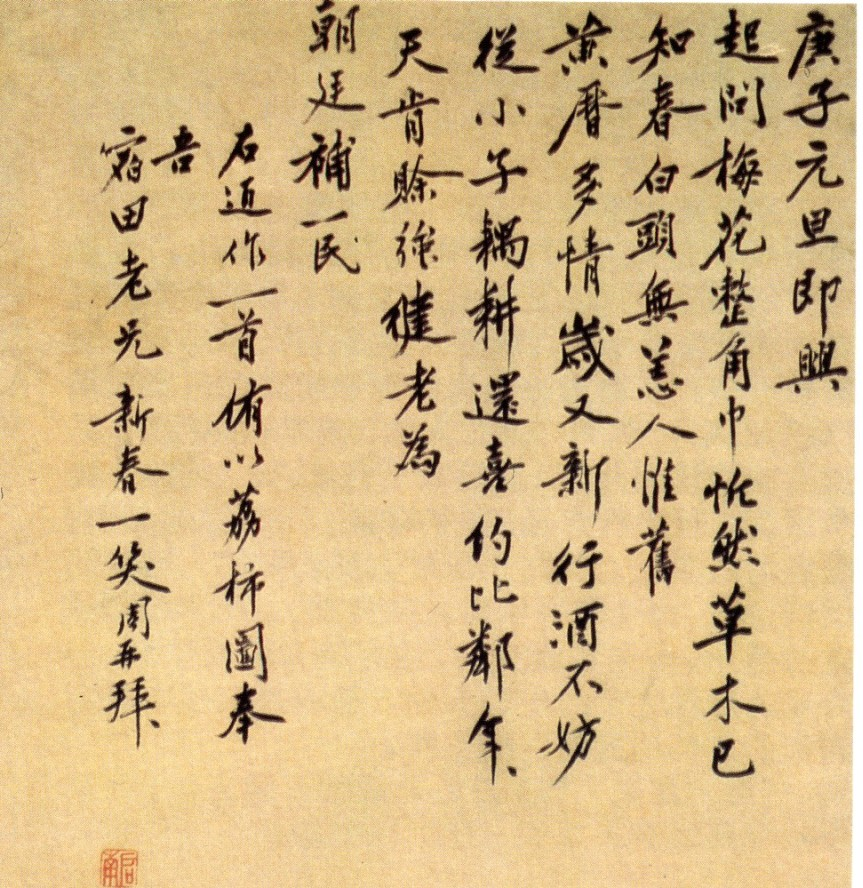 庚子元旦即興
起問梅花整角巾然草木已
知春白頭無恙人惟舊
黃曆多情歲又新行酒不妨
從小子耦耕還喜約比鄰年〻
天肯賒強健老為
朝廷補一民
右近作一首侑以荔柿圖奉
吾
宿田老兄新春一笑周再拜
啟南